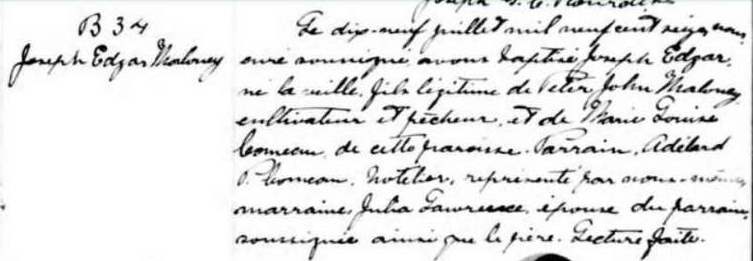 B 34
Joseph Edgar Maloney
Le dix-neuf juillet mil neuf cent seize, nous
curé soussigné, avons baptisé Joseph Edgar,
né la veille, fils légitime de Peter John Maloney,
cultivateur et pêcheur, et de Marie Louise
Comeau, de cette paroisse. Parrain, Adélard
P. Comeau, hôtelier, représenté par nous-même,
marraine, Julia Lawrence, épouse du parrain,
soussignée ainsi que le père. Lecture faite.